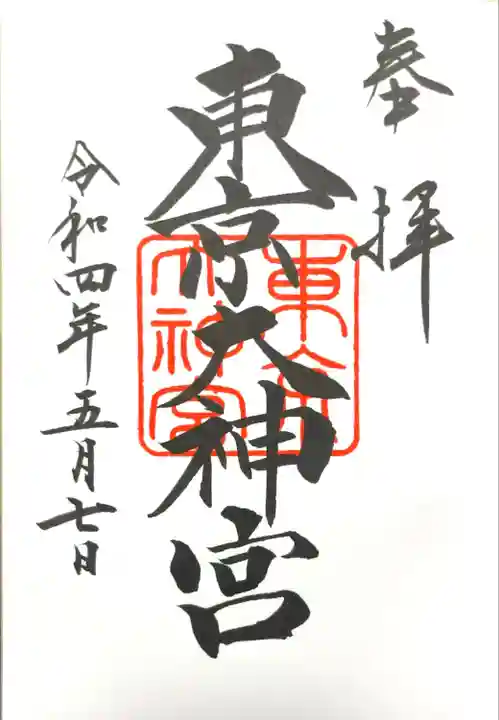 奉拝
東京大神宮
東京
大神宮
令和四年五月七日